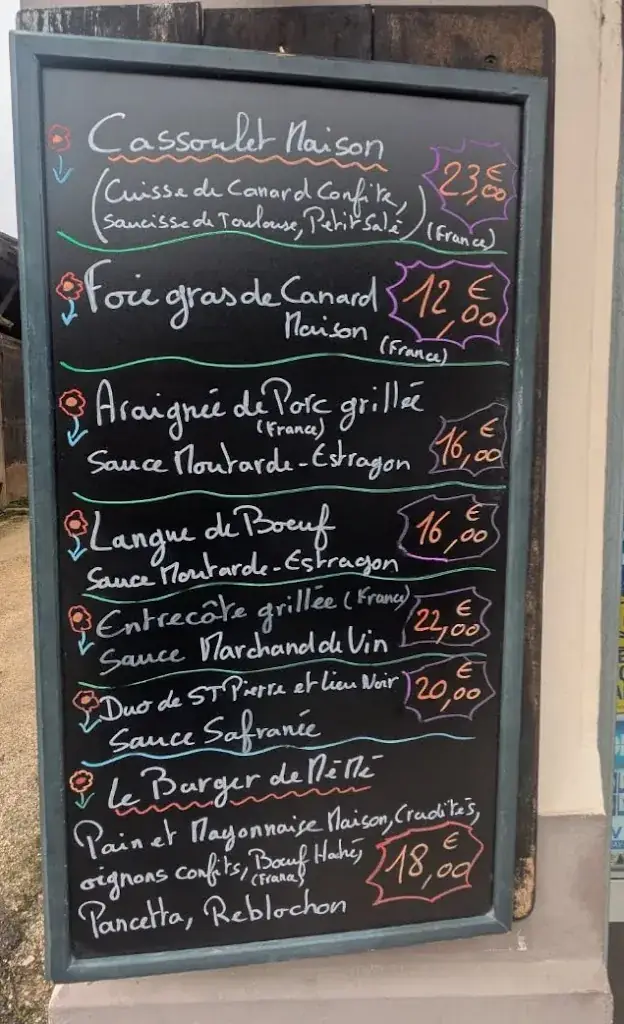 Cassoulet Maison
(Cuisse de Canard Confite,
saucisse de Toulouse, Petit Salé) (France)
23,00 €
Foie gras de Canard
Maison (France)
12,00 €
Araignée de Porc grillée
(France)
Sauce Moutarde-Estragon
16,00 €
Langue de Boeuf
Sauce Moutarde-Estragon
16,00 €
Entrecôte grillée (France)
Sauce Marchand de Vin
22,00 €
Duo de ST Pierre et Lieu Noir
Sauce Safranée
20,00 €
Le Burger de Mémé
Pain et Mayonnaise Maison, Crudités,
oignons confits, Boeuf Haché,
(France)
Pancetta, Reblochon
18,00 €